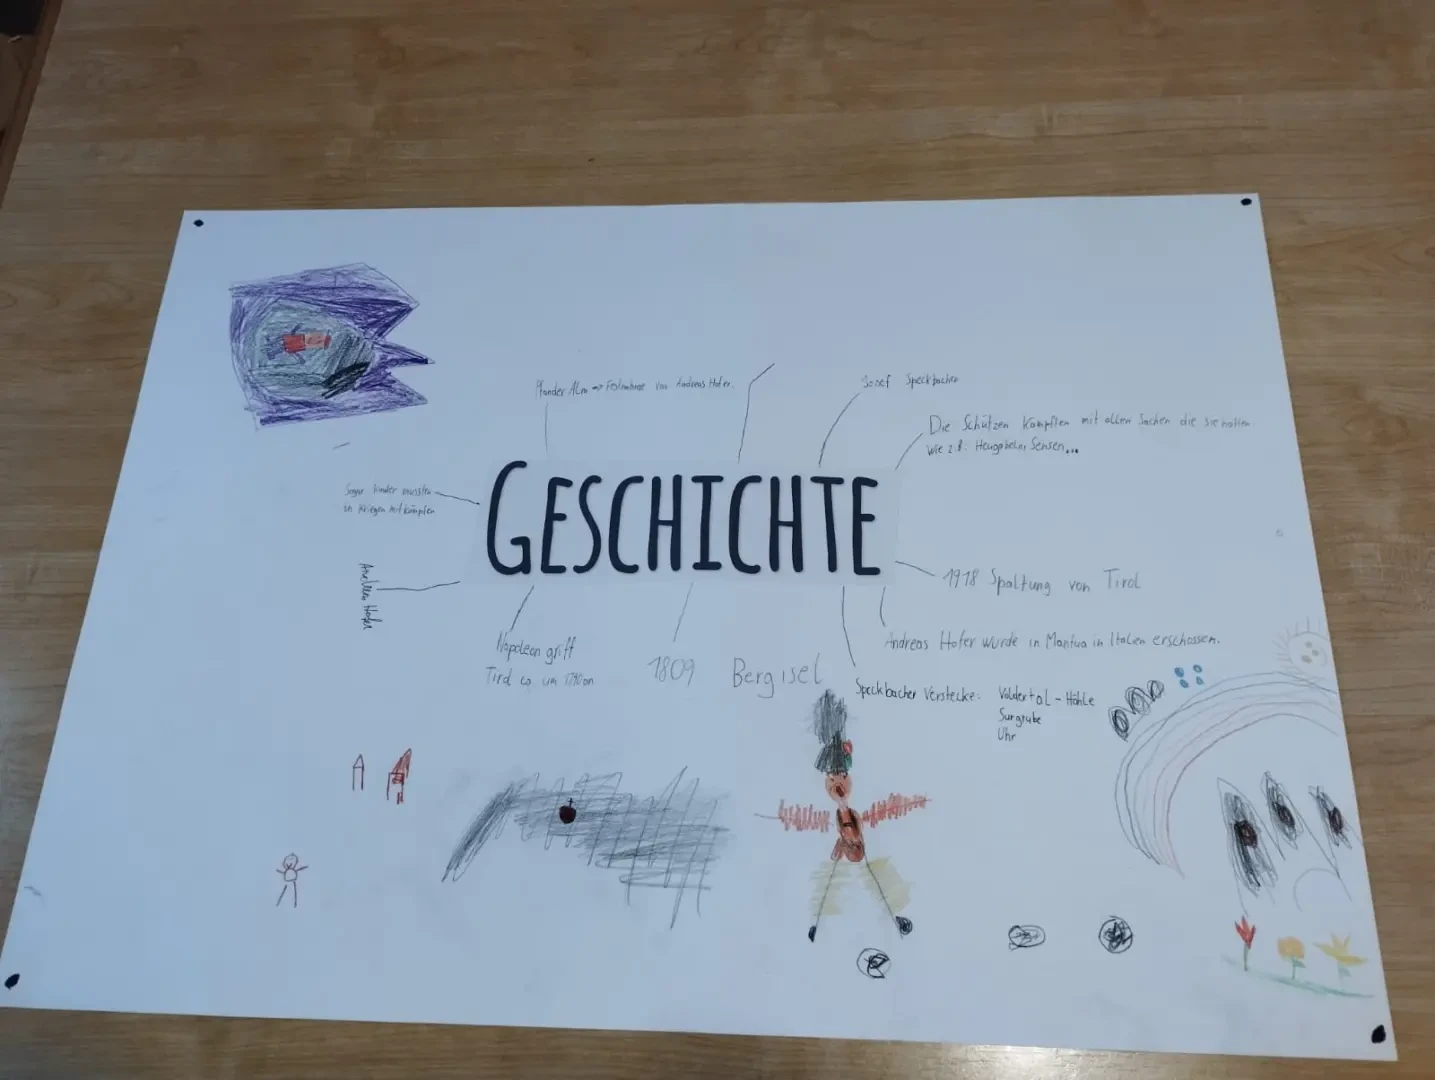 Pfander Alm → Festnahme von Andreas Hofer.
Josef Speckbacher
Die Schützen kämpften mit allen Sachen die sie hatten
wie z.B. Heugabeln, Sensen...
Sogar Kinder mussten
in Kriegen mitkämpfen
GESCHICHTE
Andreas Hofer
1918 Spaltung von Tirol
Napoleon griff
Tirol ca. um 1790 an.
1809
Bergisel
Andreas Hofer wurde in Mantua in Italien erschossen.
Speckbacher Verstecke: Voldertal-Höhle
Surgrube
Uhr